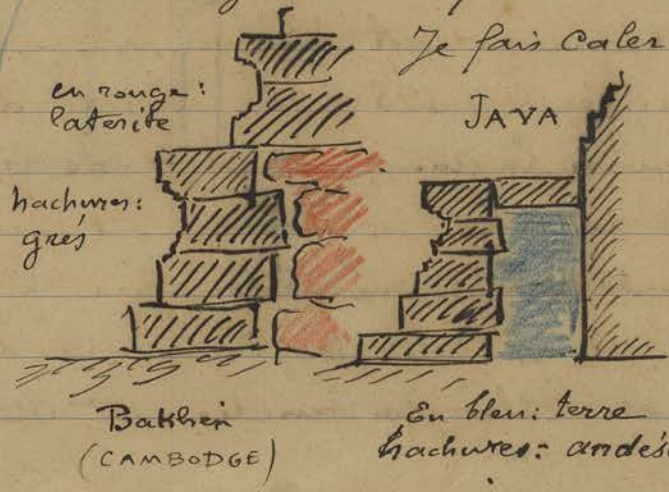 Je fais caler
en rouge :
laterite
JAVA
hachures :
grés
Bakhen
(CAMBODGE)
En bleu : terre
hachures :